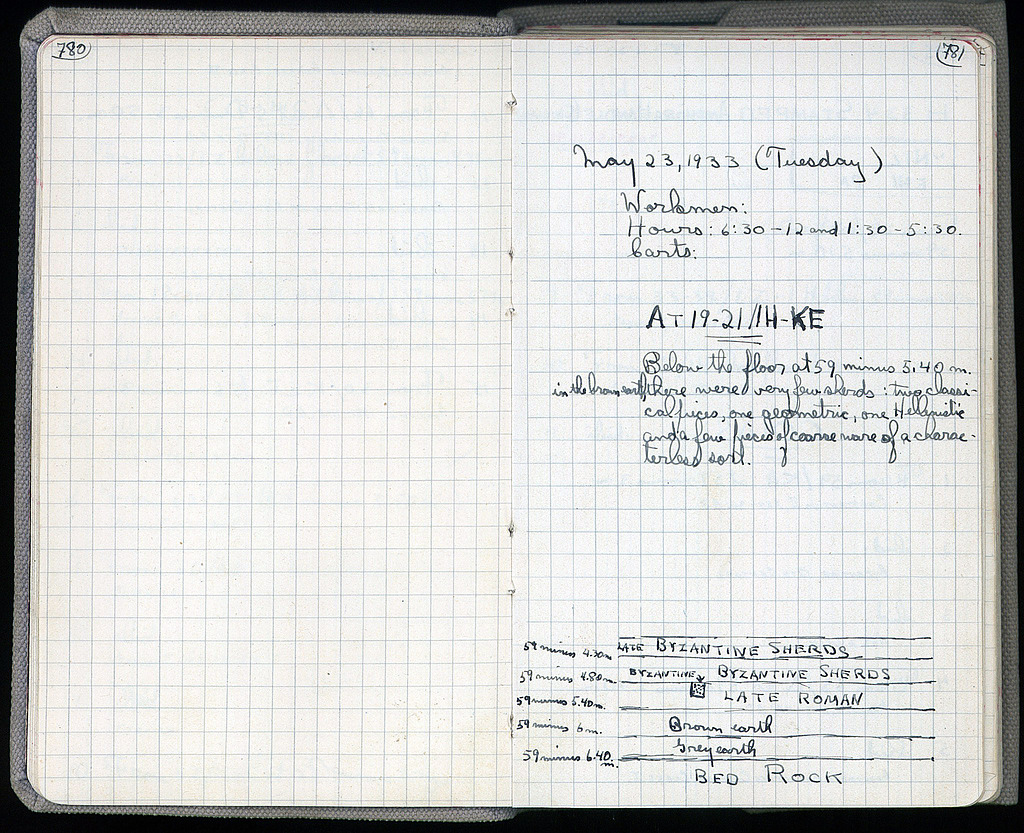 780
781
May 23, 1933 (Tuesday)
Workmen:
Hours: 6:30 - 12 and 1:30 - 5:30.
Carts:
AT 19-21/IH-KE
Below the floor at 59 minus 5.40 m.
in the brown earth, there were very few sherds: two classi-
cal pieces, one geometric, one Hellenistic
and a few pieces of coarse ware of a charac-
terless sort.
59 minus 4.30m LATE BYZANTINE SHERDS
59 minus 4.80m. BYZANTINE BYZANTINE SHERDS
59 minus 5.40m. LATE ROMAN
59 minus 6 m. Brown earth
Grey earth
59 minus 6.40 m.
BED ROCK